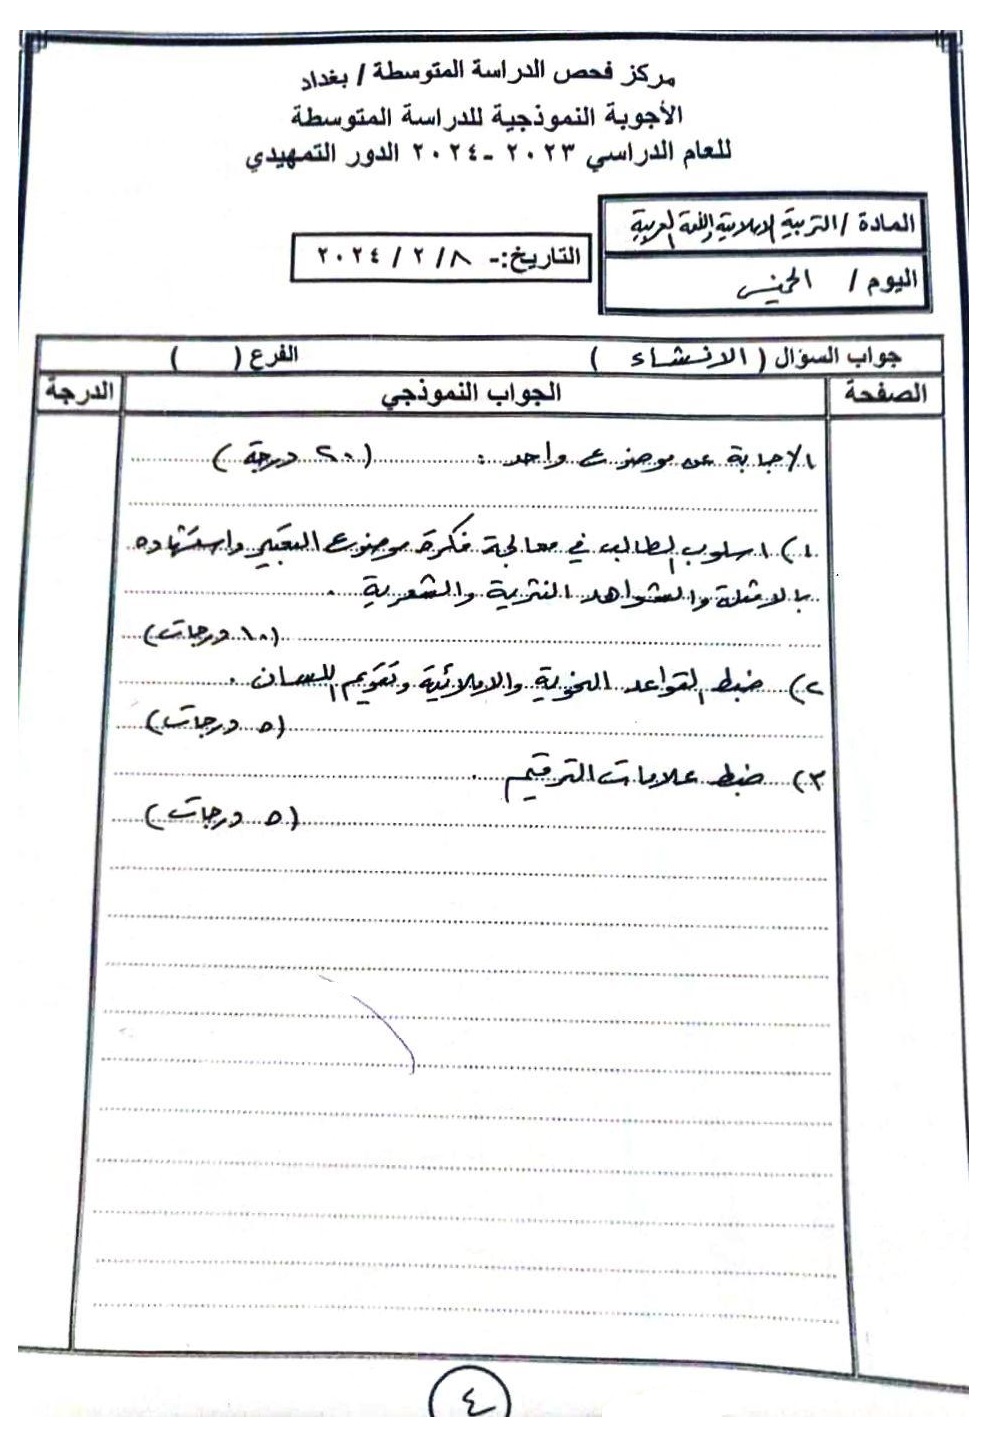 مركز فحص الدراسة المتوسطة / بغداد
الأجوبة النموذجية للدراسة المتوسطة
للعام الدراسي ٢٠٢٣ - ٢٠٢٤ الدور التمهيدي
المادة / التربية الاسلامية واللغة العربية
التاريخ:- ٨ / ٢ / ٢٠٢٤
اليوم / الخميس
جواب السؤال ( الانشاء ) الفرع ( )
الصفحة الجواب النموذجي الدرجة
الاجابة عن موضوع واحد : (٢٠ درجة)
١) اسلوب الطالب في معالجة فكرة موضوع التعبير واستشهاده
بالامثلة والشواهد النثرية والشعرية .
(١٠ درجات)
٢) ضبط القواعد النحوية والاملائية وتقويم اللسان .
(٥ درجات)
٣) ضبط علامات الترقيم .
(٥ درجات)
٤